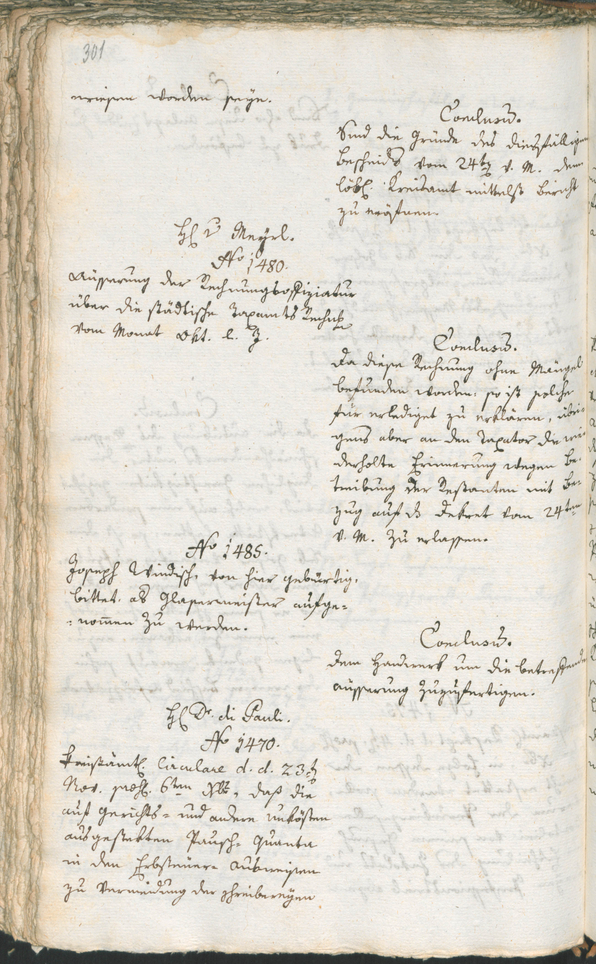 301
wiesen worden seÿe.
Conclusum.
Sind die Gründe des diesfälligen
Bescheids vom 24ten v. M. dem
löbl. Kreisamt mittelst Bericht
zu eröfnen.
H. v Mayrl.
No 1480.
Äusserung der Rechnungsoffiziatur
über die städtische Taxamts Rechnung
vom Monat Okt. l. J.
Conclusum.
Da diese Rechnung ohne Mängel
befunden worden, so ist solche
für erlediget zu erklären, übri-
gens aber an den Taxator die wie-
derholte Erinnerung wegen Be-
treibung der Restanten mit Be-
zug auf das Dekret vom 24ten
v. M. zu erlassen.
No 1485.
Joseph Windisch, von hier gebürtig,
bittet als Glasermeister aufge-
nom̄en zu werden.
Conclusum.
Dem Handwerk um die betreffende
Äusserung zuzufertigen.
H. Dr. di Pauli.
No 1470.
Kreisämtl. Circulare d. d. 23t
Nov. 6ten daß die
auf Gerichts- und andere Unkösten
ausgesteckten Pausch-Quanta
in den Erbsteuer-Ausweisen
zu Vermeidung der Schreibereyen